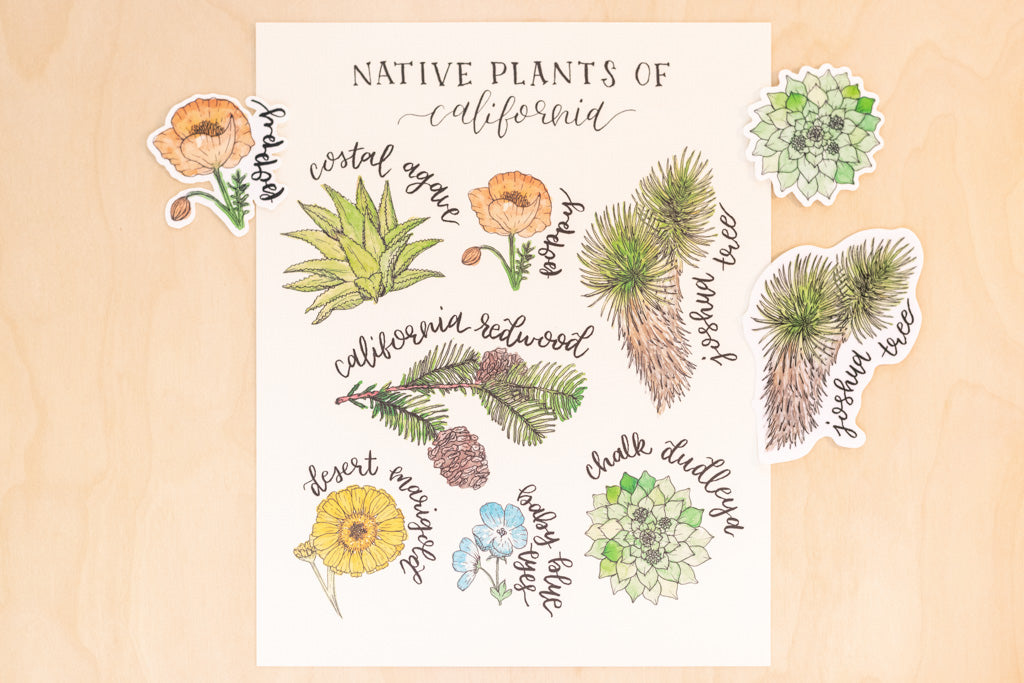 NATIVE PLANTS OF
california
costal agave
poppy
joshua tree
california redwood
desert marigold
baby blue
eyes
chalk dudleya
poppy
joshua tree